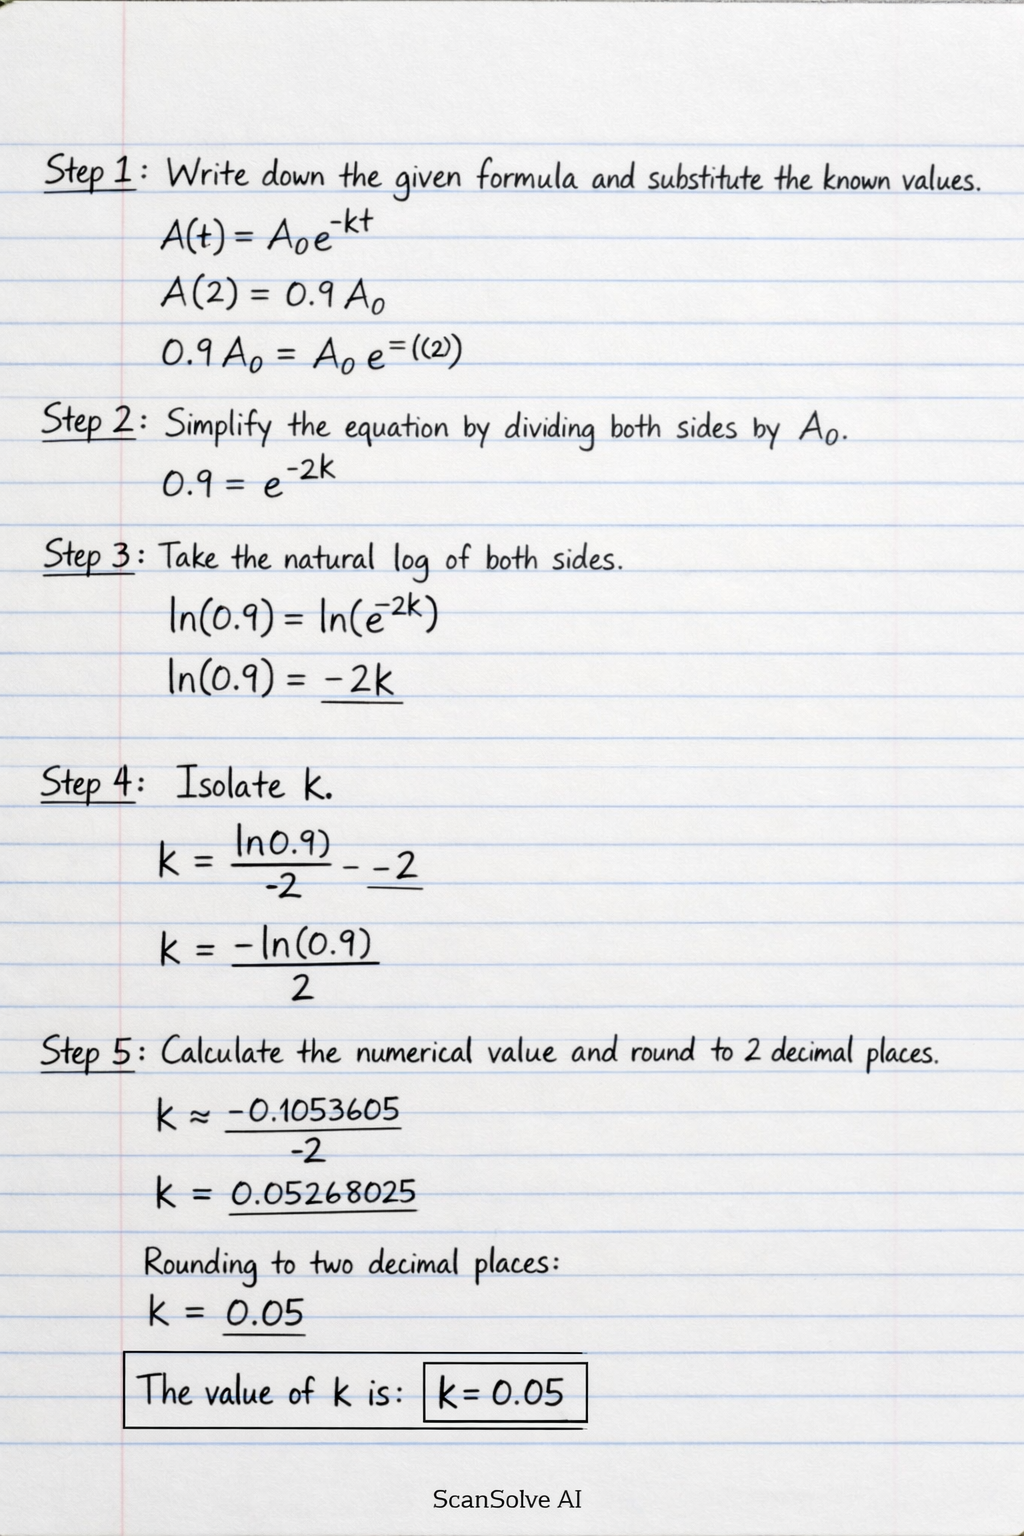 Step 1: Write down the given formula and substitute the known values.
A(t) = A₀e^-kt
A(2) = 0.9 A₀
0.9 A₀ = A₀ e^=((2))
Step 2: Simplify the equation by dividing both sides by A₀.
0.9 = e^-2k
Step 3: Take the natural log of both sides.
ln(0.9) = ln(e^-2k)
ln(0.9) = -2k
Step 4: Isolate k.
k = ln0.9)/-2 - -2
k = -ln(0.9)/2
Step 5: Calculate the numerical value and round to 2 decimal places.
k ≈ -0.1053605/-2
k = 0.05268025
Rounding to two decimal places:
k = 0.05
The value of k is: k = 0.05
ScanSolve AI